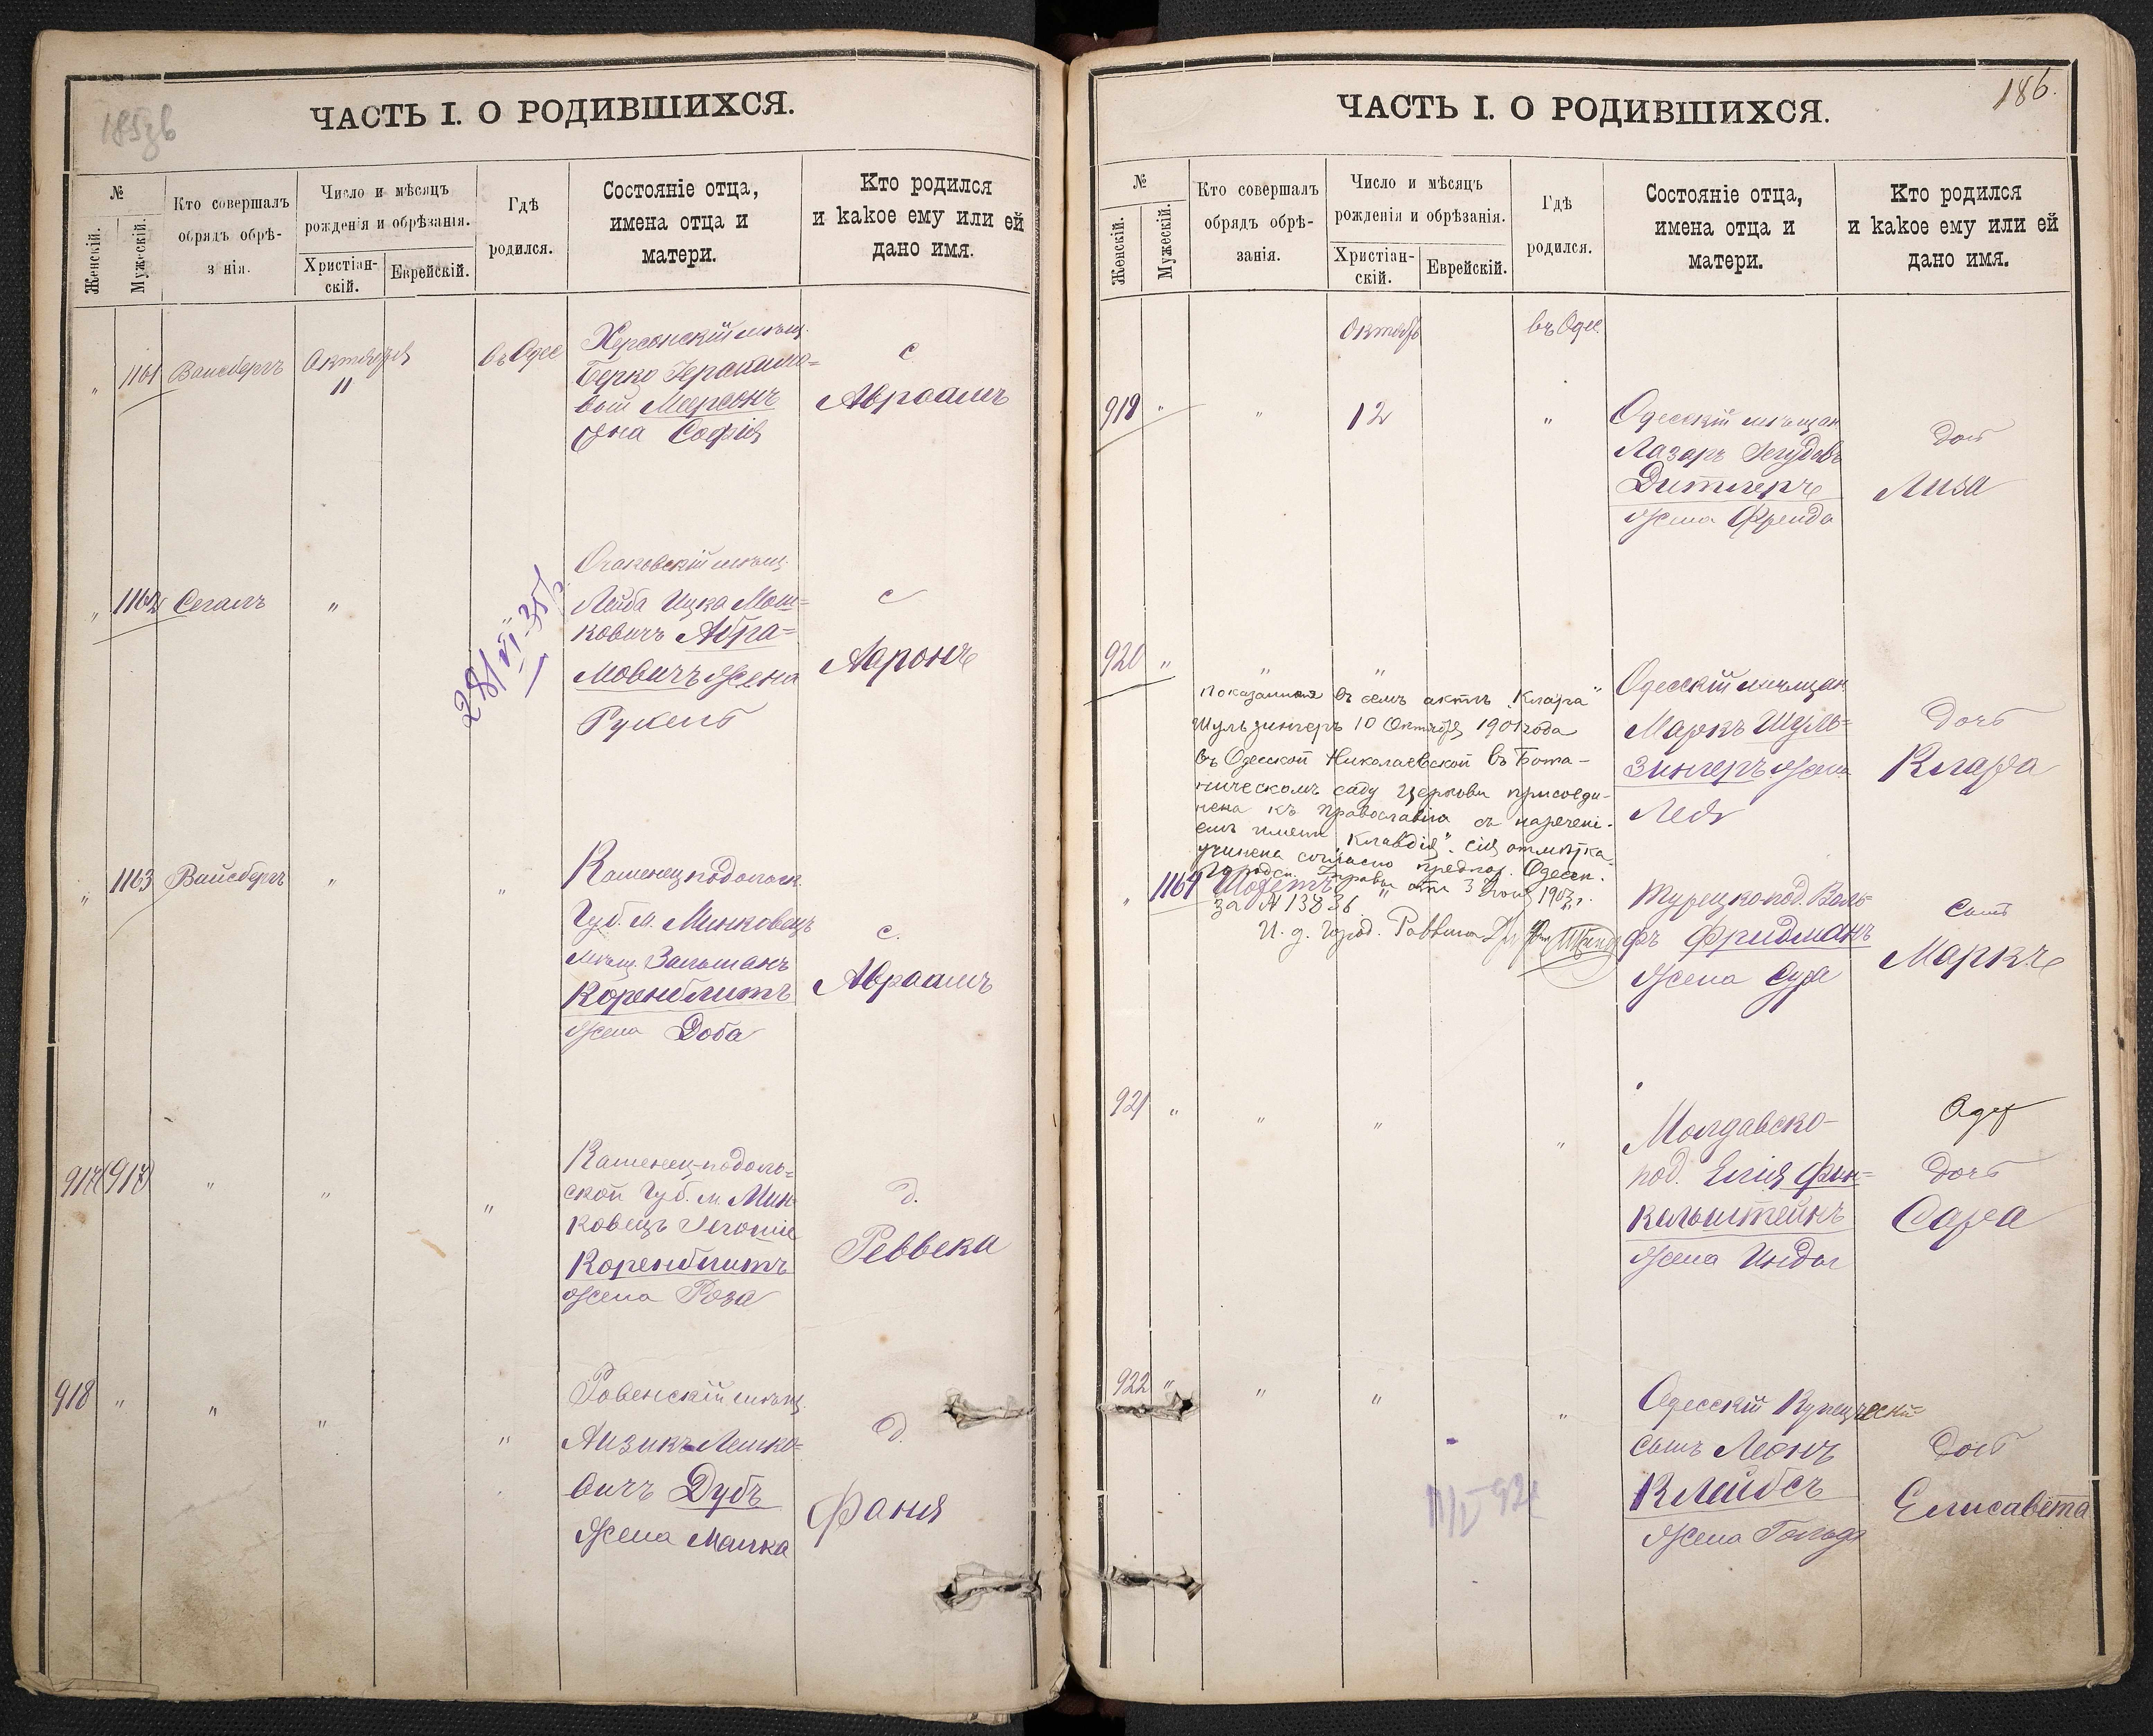 185 об
ЧАСТЬ I. О РОДИВШИХСЯ.
№
Женскій.
Мужескій.
Кто совершалъ
обрядъ обрѣ-
з нія.
Число и мѣсяцъ
рожденія и обрѣзанія.
Христіан-
скій.
Еврейскій.
Гдѣ
родился.
Состояніе отца,
имена отца и
матери.
Кто родился
и какое ему или ей
дано имя.
" 1161 Вайсбергъ Октября въ Одес
11
Херсонскій мѣщ.
Берко
вой Меерсонъ
Жена Софія
с
Авраамъ
" 1162 Сегалъ "
281 VI-35
Очаковскій мѣщ.
Лейба Ицка Мош=
ковичъ Абра=
мовичъ Жена
с
Ааронъ
" 1163 Вайсбергъ " "
Каменецподольск.
Губ. м. Минковецъ
мѣщ. Зальманъ
Коренблитъ
Жена Доба
с.
Авраамъ
917 " " "
Каменец-подоль=
ской Губ. м. Мин=
ковецъ
Коренблитъ
жена Роза
д.
Реввека
918 " " " "
Ровенскій мѣщ.
Айзикъ Лейко=
вичъ Дубъ
Жена Малка
д.
Фаня
186.
ЧАСТЬ I. О РОДИВШИХСЯ.
№
Женскій.
Мужескій.
Кто совершалъ
обрядъ обрѣ-
занія.
Число и мѣсяцъ
рожденія и обрѣзанія.
Христіан-
скій.
Еврейскій.
Гдѣ
родился.
Состояніе отца,
имена отца и
матери.
Кто родился
и какое ему или ей
дано имя.
Октябр въ Одес.
919 " " 12 "
Одесскій мѣщан
Лазарь Іегудовъ
Дитлеръ
жена Фрейда
доч
Лиза
920 " " "
Одесскій мѣщан
Маркъ Шуль=
зингеръ Жена
Лея
Дочь
Клара
показанная въ семъ актѣ „Клара"
Шульзингеръ 10 Октября 1901 года
въ Одесской Николаевской въ Бота-
ническомъ саду церкви присоеди-
нена къ православію съ наречені-
емъ имени „Клавдія". Сія отмѣтка
учинена согласно предлож. Одесск.
Городск. Управы отъ 3 1903 г.
за № 13836
И. д. Город. Раввина
" 1164
Турецко-под. Воль-
фъ Фридманъ
Жена Сура
Сынъ
Маркъ
921 " " " "
Молдавско-
под. Елія Фин=
кельштейнъ
Жена Инда
Дочь
Сара
922 " " " "
Одесскій Купеческій
сынъ Леонъ
Клейбсъ
Жена Гольда
Дочь
Елисавета